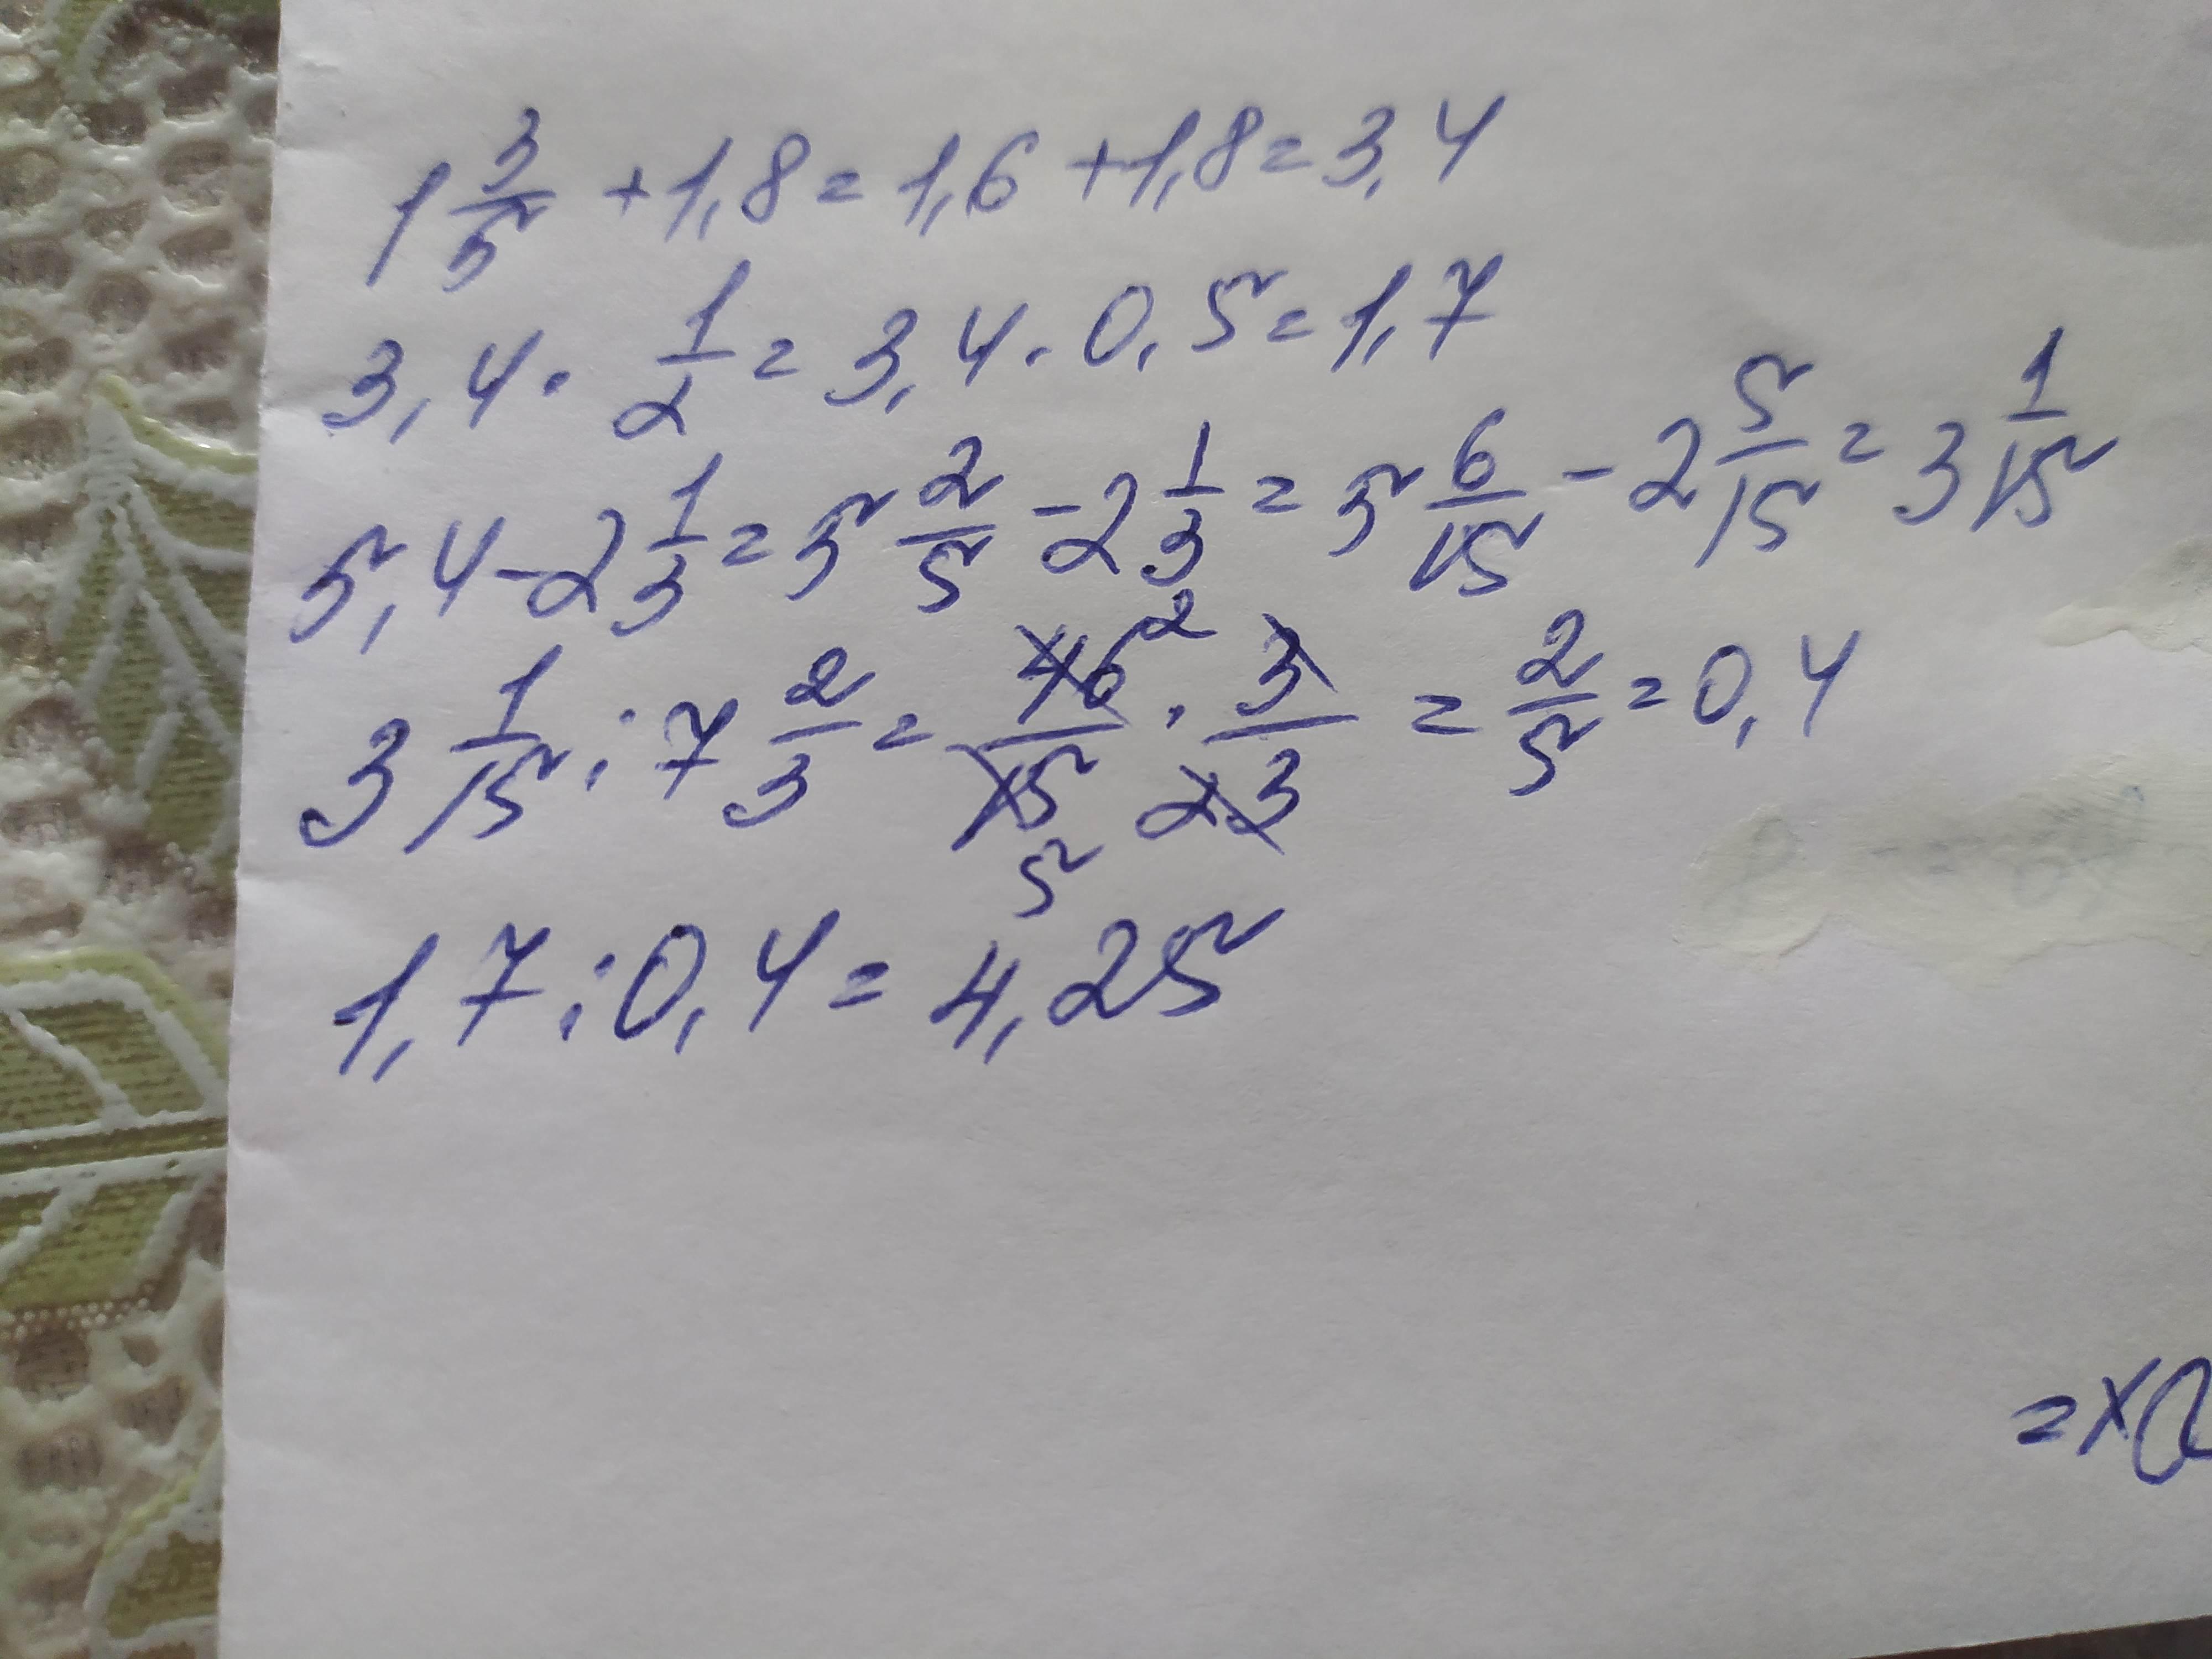 1 3/5 + 1,8 = 1,6 + 1,8 = 3,4
3,4 · 1/2 = 3,4 · 0,5 = 1,7
5,4 - 2 1/3 = 5 2/5 - 2 1/3 = 5 6/15 - 2 5/15 = 3 1/15
3 1/15 : 7 2/3 = 46 2/15 5 · 3/23 = 2/5 = 0,4
1,7 : 0,4 = 4,25